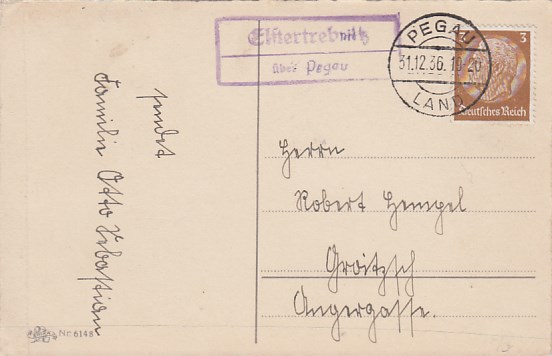 Elstertrebnitz
über Pegau
PEGAU
31.12.36.
LAND
3
Deutsches Reich
sendet
Familie Otto Sebastian
Herrn
Robert Hempel
Groitzsch
Angergasse.
No 6148